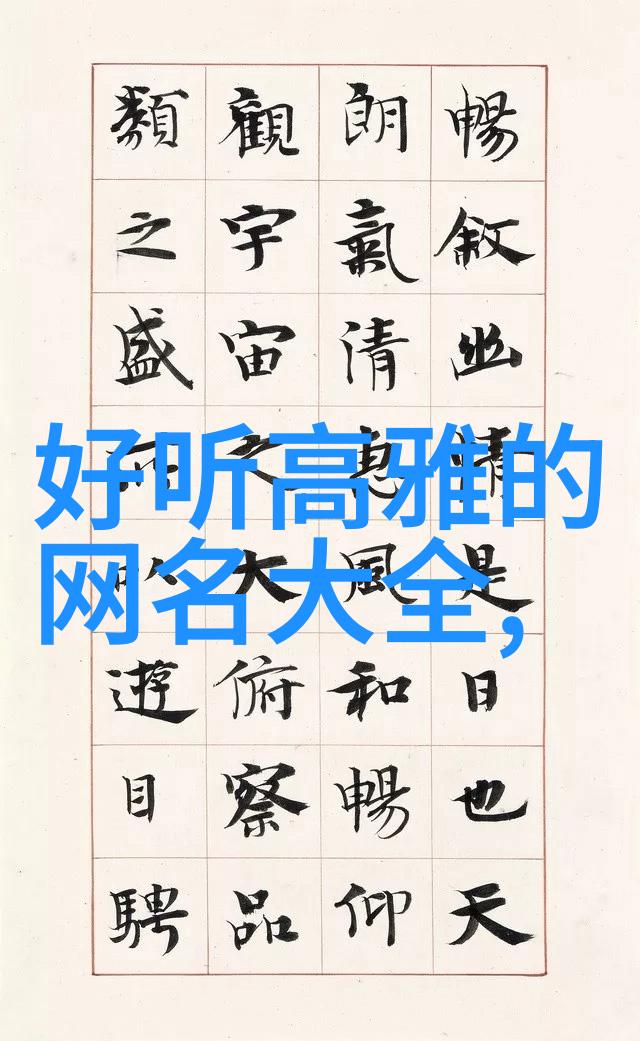 好听高雅的
网名大全,
暢敘幽情是日也天
朗氣清惠風和暢仰
觀宇宙之大俯察品
類之盛所以遊目騁